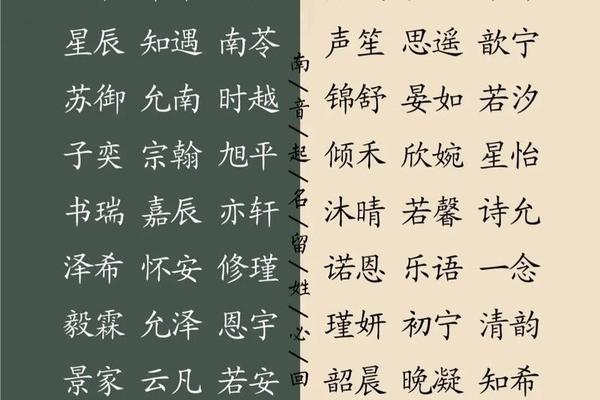 星辰 知遇 南苓
苏御 允南 时越
子奕 宗翰 旭平
书瑞 嘉辰 亦轩
泽希 怀安 修瑾
毅霖 允泽 恩宇
景家 云凡 若安
南/音/起/名/留/姓/必/回
声笙 思遥 歆宁
锦舒 晏如 若汐
倾禾 欣婉 星怡
沐晴 若馨 诗允
诺恩 乐语 一念
瑾妍 初宁 清韵
韶晨 晚凝 知希